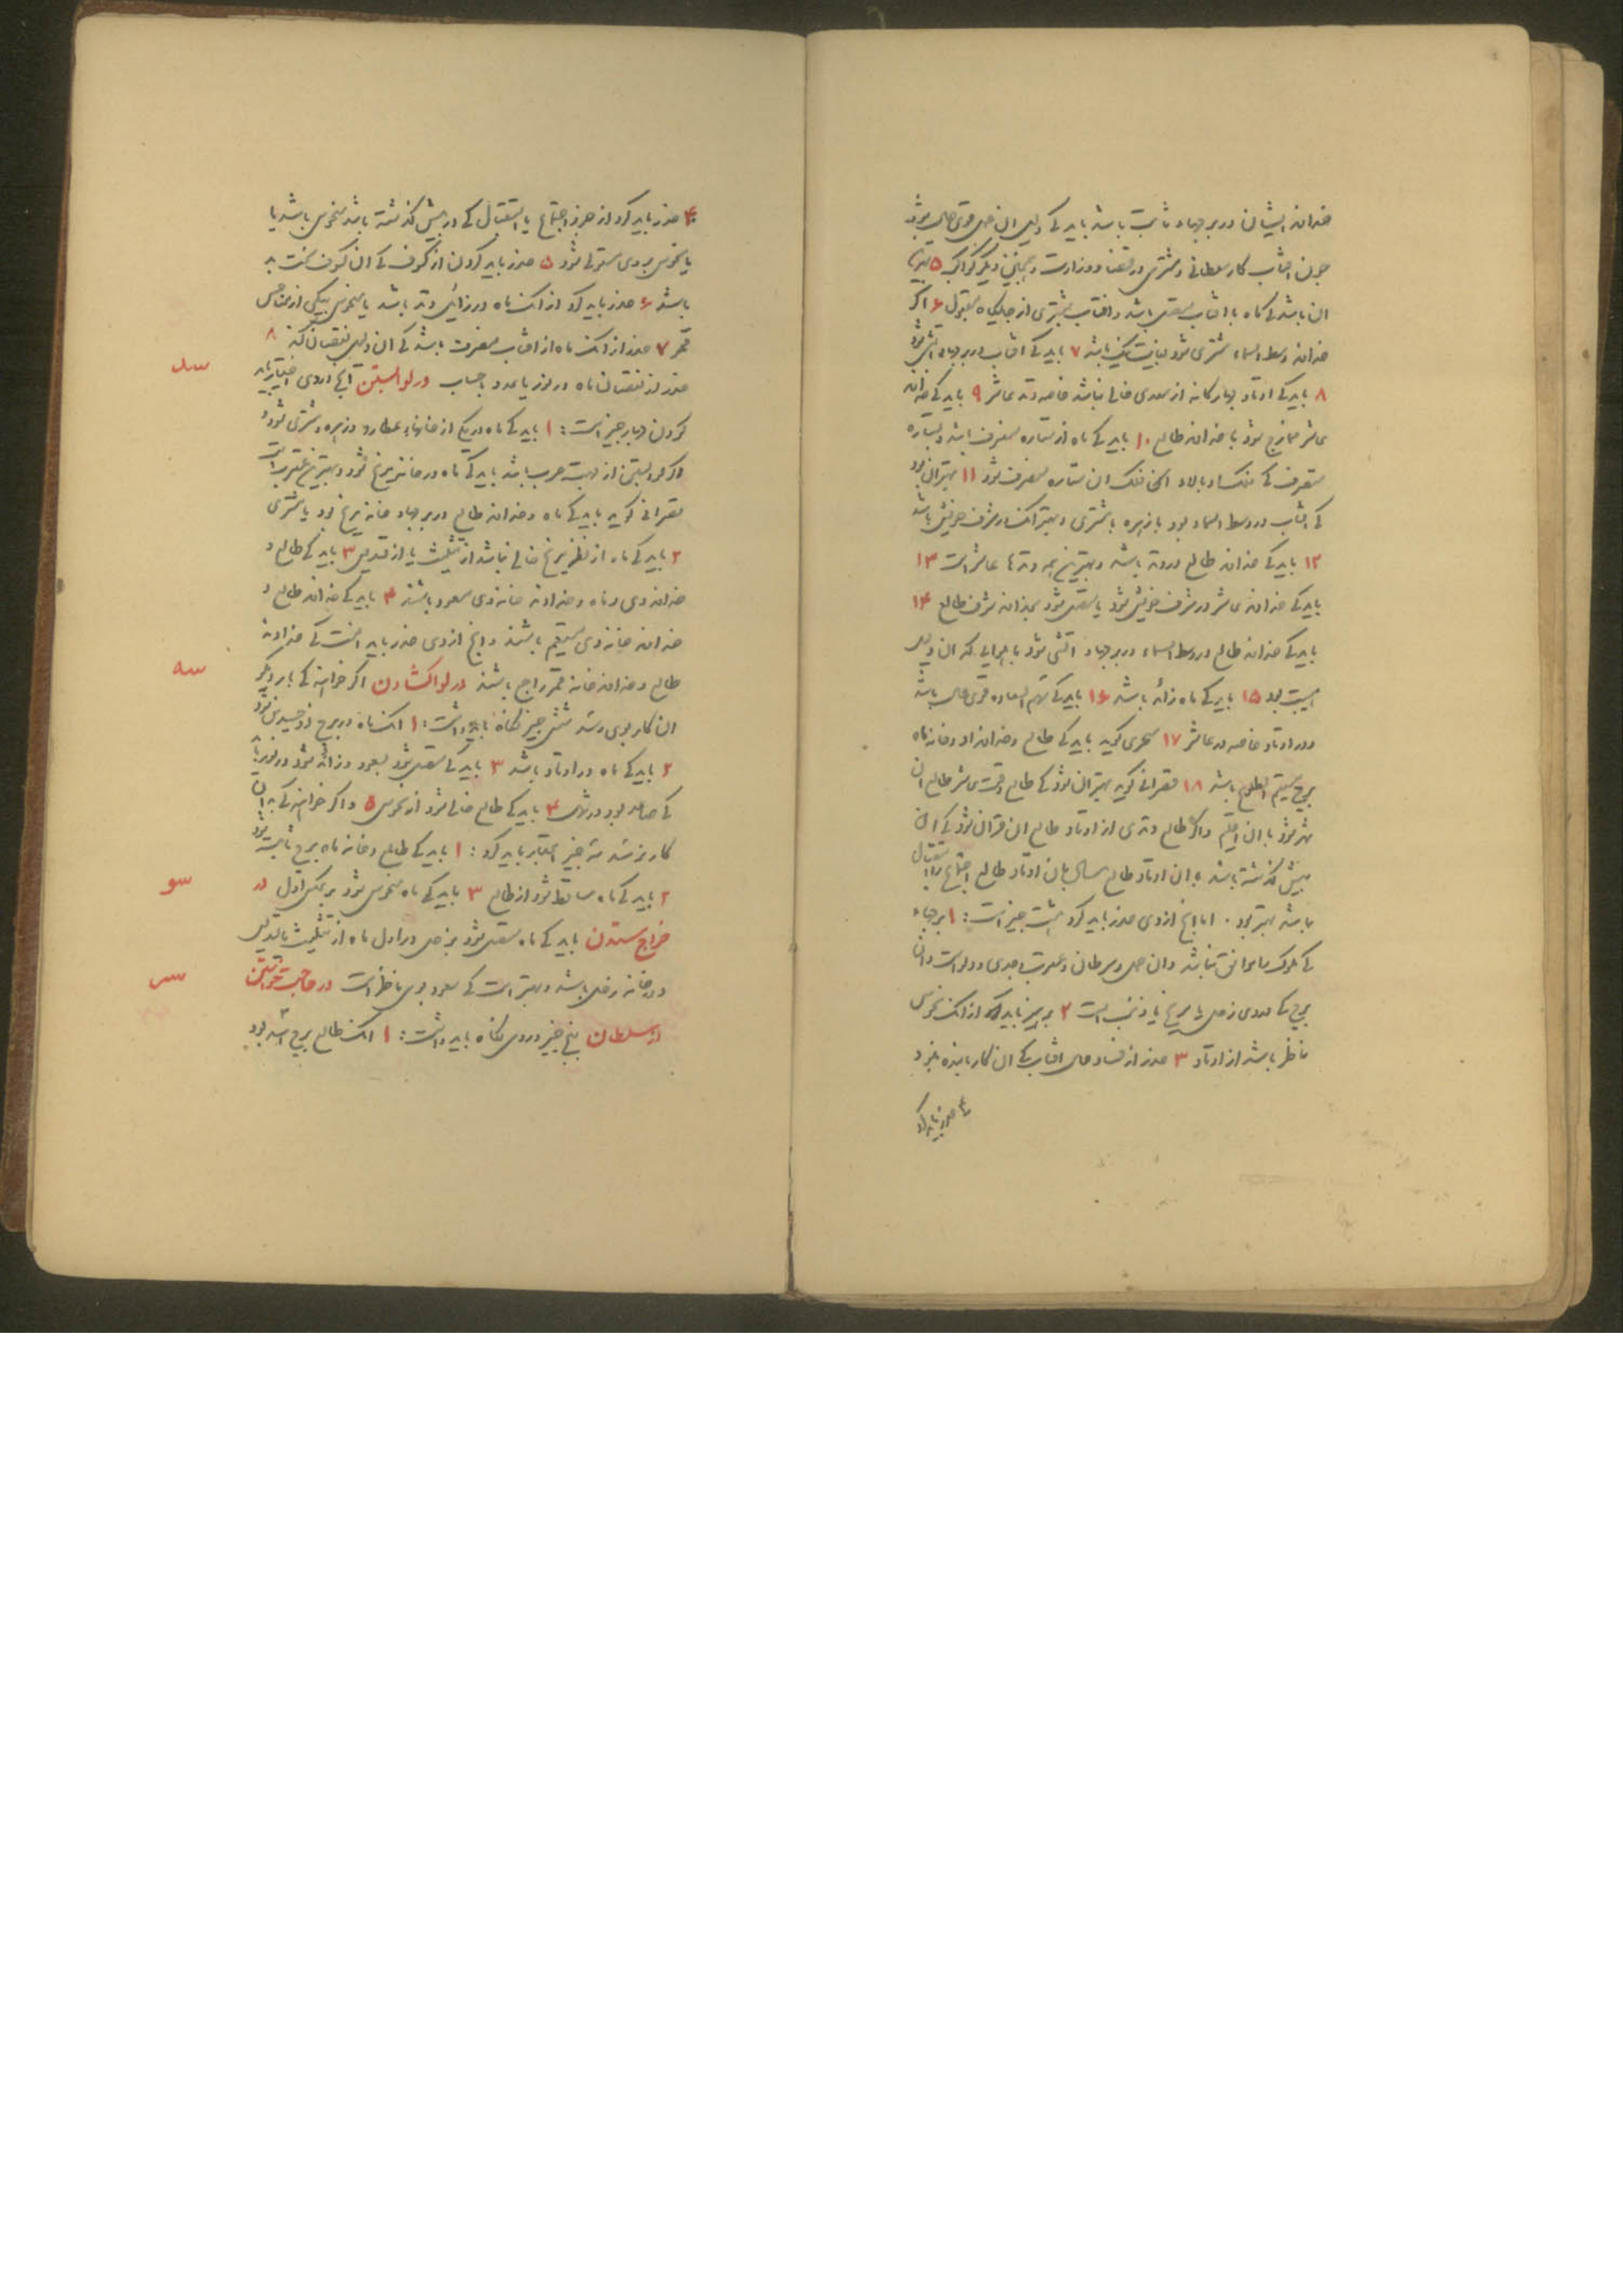 خداوند ایشان در برجهاء ثابت باشد باید کی دلیل آن عمل قوی حال بود
چون افتاب کار سلطانی و مشتری در قضا و وزارت و همچنین دیگر کواکب ۵ بهترین
ان باشد کی ماه با افتاب متصل باشد و افتاب بمشتری از جایگاه مقبول ۶ اکر
خداوند وسط السماء مشتری بود بغایت نیک باشد ۷ باید کی افتاب در برجهاء اتشی بود
۸ باید کی اوتاد چهارگانه از سعدی خالی نباشد خاصه وتد عاشر ۹ باید کی خداوند
عاشر ممازج بود با خداوند طالع ۱۰ باید کی ماه از ستاره منصرف باشد و ستاره
منصرف کی فلک او بالاء فلک ان ستاره منصرف بود ۱۱ بهتر ان بود
کی افتاب در وسط السماء بود با زهره یا مشتری و بهتر انک در شرف خویش باشد
۱۲ باید کی خداوند طالع در وتد باشد و بهترین همه وتدها عاشر است ۱۳
باید کی خداوند عاشر در شرف خویش بود یا متصل بود بخداوند شرف طالع ۱۴
باید کی خداوند طالع در وسط السماء در برجهاء اتشی بود یا هوایی که ان دلیل
هیبت بود ۱۵ باید کی ماه زائد باشد ۱۶ باید کی سهم السعاده قوی حال باشد
و در اوتاد خاصه در عاشر ۱۷ سجزی کوید باید کی طالع و خداوند او و خانه ماه
برج مستقیم الطلوع باشد ۱۸ قصرانی کوید بهتر ان بود کی طالع وقت عاشر طالع ان
شهر بود یا ان اقلیم و اکر طالع وتدی از اوتاد طالع ان قران بود کی از
پیش کذشته باشد یا ان اوتاد طالع سال یا ان اوتاد طالع اجتماع یا استقبال
باشد بهتر بود . اما انچ از وی حذر باید کرد هشت چیز است : ۱ برجهاء
کی ملوک را موافق نباشد و ان حمل و سرطان و عقرب و جدی و دلو است و ان
برج کی دروی زحل یا مریخ یا ذنب است ۲ پرهیز باید کرد از انک نحوس
ناظر باشد از اوتاد ۳ حذر از فساد حال افتاب کی ان کار باینده نبود
۴ حذر باید کرد
۴ حذر باید کرد از جزو اجتماع یا استقبال کی در پیش کذشته باشد منحوس باشد یا
یا نحوس بر وی مستولی بود ۵ حذر باید کردن از کسوف کی ان کسوف سخت بد
باشد ۶ حذر باید کرد از انک ماه در زائل وتد باشد یا منحوس بیکی از مناحس
قمر ۷ حذر از انک ماه از افتاب منصرف باشد کی ان دلیل نقصان کند ۸
حذر از نقصان ماه در نور یا عدد یا حساب در لوا بستن انچ در وی اختیار باید
کردن چهار چیز است : ۱ باید کی ماه در یکی از خانهاء عطارد و زهره و مشتری بود و
اکر لوا بستن از جهت حرب باشد باید کی ماه در خانه مریخ بود و بهترین عقرب است
قصرانی کوید باید کی ماه و خداوند طالع در برجهاء خانه مریخ بود یا مشتری
۲ باید کی ماه از نظر مریخ خالی نباشد از تثلیث یا از تسدیس ۳ باید کی طالع و
خداوند وی و ماه و خداوند خانه وی مسعود باشند ۴ باید کی خداوند طالع و
خداوند خانه وی مستقیم باشند و انچ از وی حذر باید انست کی خداوند
طالع و خداوند خانه قمر راجع باشند در لوا کشادن اکر خواهند کی بار دیکر
سد
ان کار بوی رسد شش چیز نکاه باید داشت : ۱ انک ماه در برج ذو جسدین بود
سه
۲ باید کی ماه در اوتاد باشد ۳ باید کی متصل بود بسعود و زائد بود در نور یا
کی صاعد بود در شمال ۴ باید کی طالع خالی بود از نحوس ۵ و اکر خواهند کی بدان
کار نرسد سه چیز اعتبار باید کرد : ۱ باید کی طالع و خانه ماه برج ثابت بود
۲ باید کی ماه ساقط بود از طالع ۳ باید کی ماه منحوس بود بر عکس اول در
سو
خراج ستدن باید کی ماه متصل بود بزحل در اول ماه از تثلیث یا تسدیس
و در خانه زحل باشد و بهتر است کی سعود بوی ناظر است در حاجت خواستن
سر
از سلطان پنج چیز در وی نکاه باید داشت : ۱ انک طالع برج اسد بود